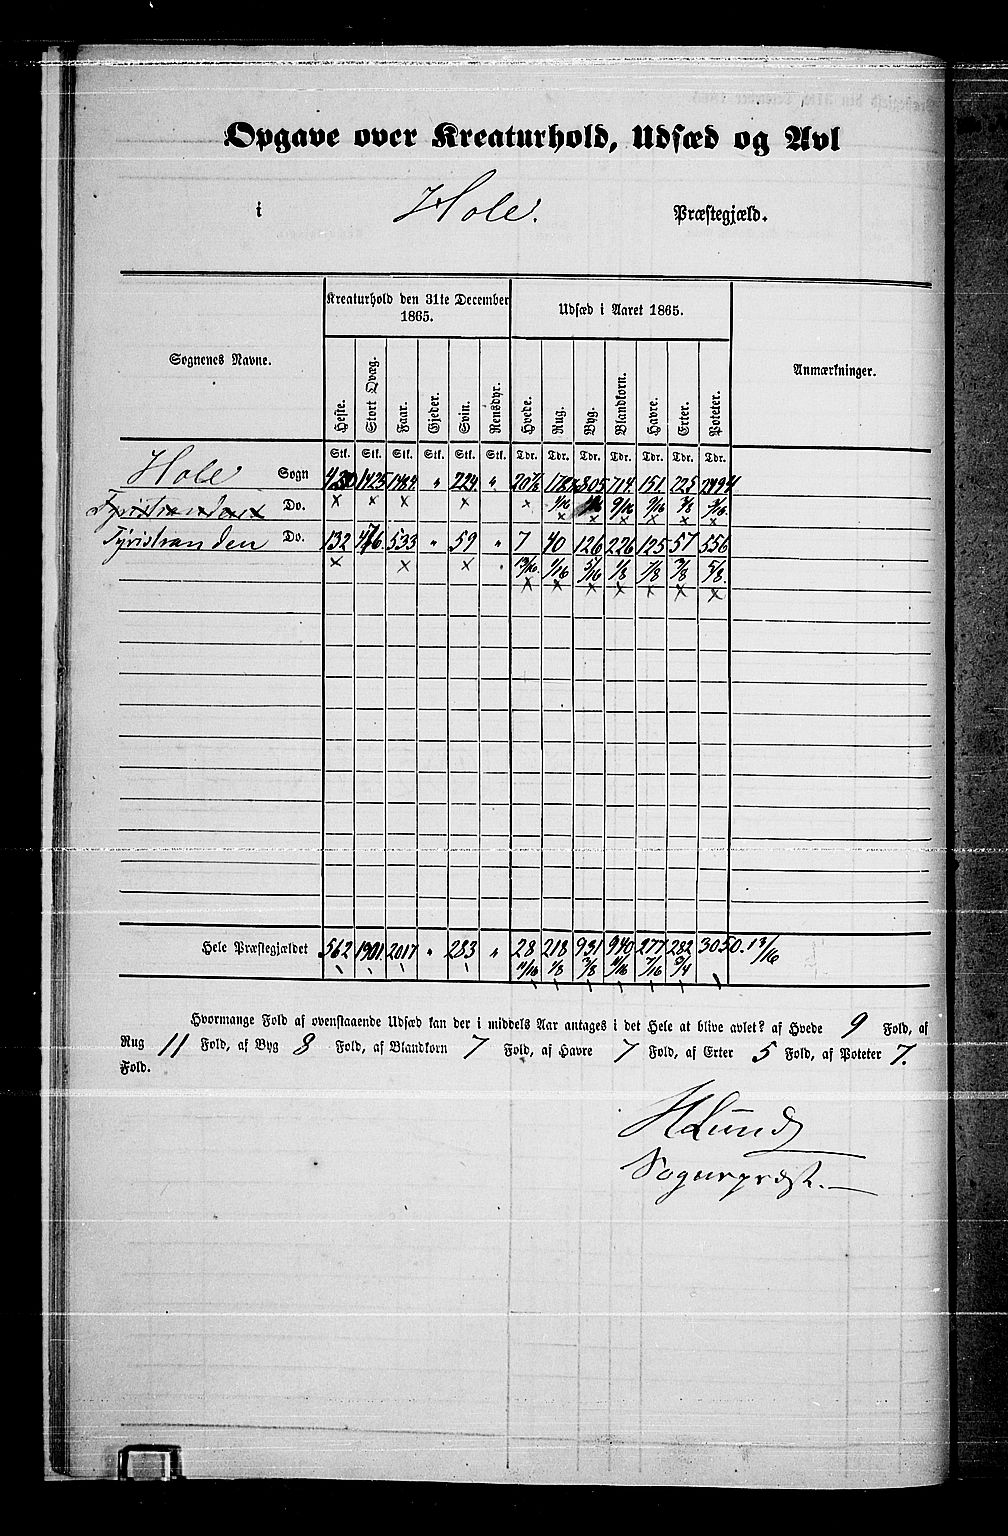 Opgave over Kreaturhold, Udsæd og Avl
i Hole. Præstegjæld.
Sognenes Navne. Kreaturhold den 31te December 1865. Udsæd i Aaret 1865. Anmærkninger.
Heste. Stort Qvæg. Faar. Gjeder. Svin. Rensdyr. Hvede. Rug. Byg. Blandkorn. Havre. Erter. Poteter.
Stk. Stk. Stk. Stk. Stk. Stk. Tdr. Tdr. Tdr. Tdr. Tdr. Tdr. Tdr.
Hole Sogn 430 1425 1484 " 224 " 20 7/8 178 805 714 151 225 2494
Tyristranden Do. 1/16 9/16 9/16 3/8 3/16
Tyristranden Do. 132 476 533 " 59 " 7 40 126 226 125 57 556
13/16 1/16 5/16 1/8 7/8 3/8 5/8
Hele Præstegjældet 562 1901 2017 " 283 " 28 218 931 940 277 282 3050. 13/16
11/16 1/8 3/8 11/16 7/16 3/4
Hvormange Fold af ovenstaaende Udsæd kan der i middels Aar antages i det Hele at blive avlet? af Hvede 9 Fold, af
Rug 11 Fold, af Byg 8 Fold, af Blandkorn 7 Fold, af Havre 7 Fold, af Erter 5 Fold, af Poteter 7.
Fold.
H Lund
Sogneprest.